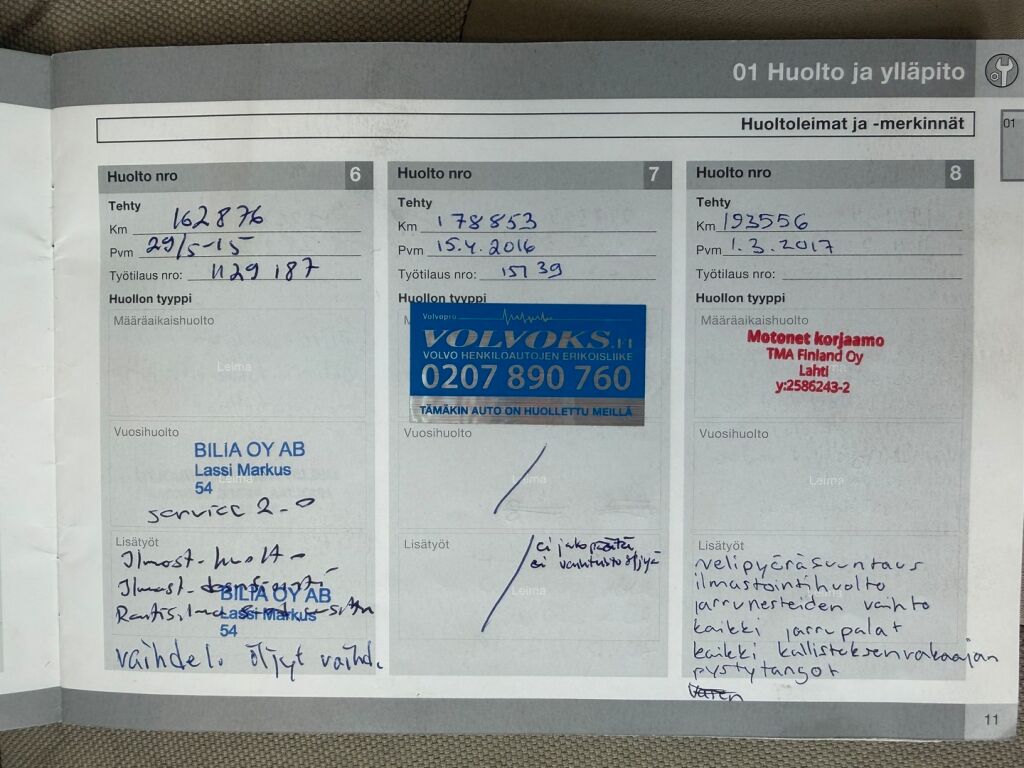 01 Huolto ja ylläpito
01
Huoltoleimat ja -merkinnät
Huolto nro 6
Tehty
Km 162876
Pvm 29/5-15
Työtilaus nro: 1129187
Huollon tyyppi
Määräaikaishuolto
Leima
Vuosihuolto
BILIA OY AB
Lassi Markus
54
service 2.0
Lisätyöt
Ilmast. huolt
Ilmast.
BILIA OY AB
Lassi Markus
54
vaihdel. öljyt vaihd.
Huolto nro 7
Tehty
Km 178853
Pvm 15.4.2016
Työtilaus nro: 15139
Huollon tyyppi
Volvopro
VOLVOKS.FI
VOLVO HENKILÖAUTOJEN ERIKOISLIIKE
0207 890 760
TÄMÄKIN AUTO ON HUOLLETTU MEILLÄ
Vuosihuolto
Leima
Lisätyöt
ei jakopäätä,
ei vaihteistoöljyä
Leima
Huolto nro 8
Tehty
Km 193556
Pvm 1.3.2017
Työtilaus nro:
Huollon tyyppi
Määräaikaishuolto
Motonet korjaamo
TMA Finland Oy
Lahti
y:2586243-2
Vuosihuolto
Leima
Lisätyöt
nelipyöräsuuntaus
ilmastointihuolto
jarrunesteiden vaihto
kaikki jarrupalat
kaikki kallistuksenvakaajan
pystytangot
11